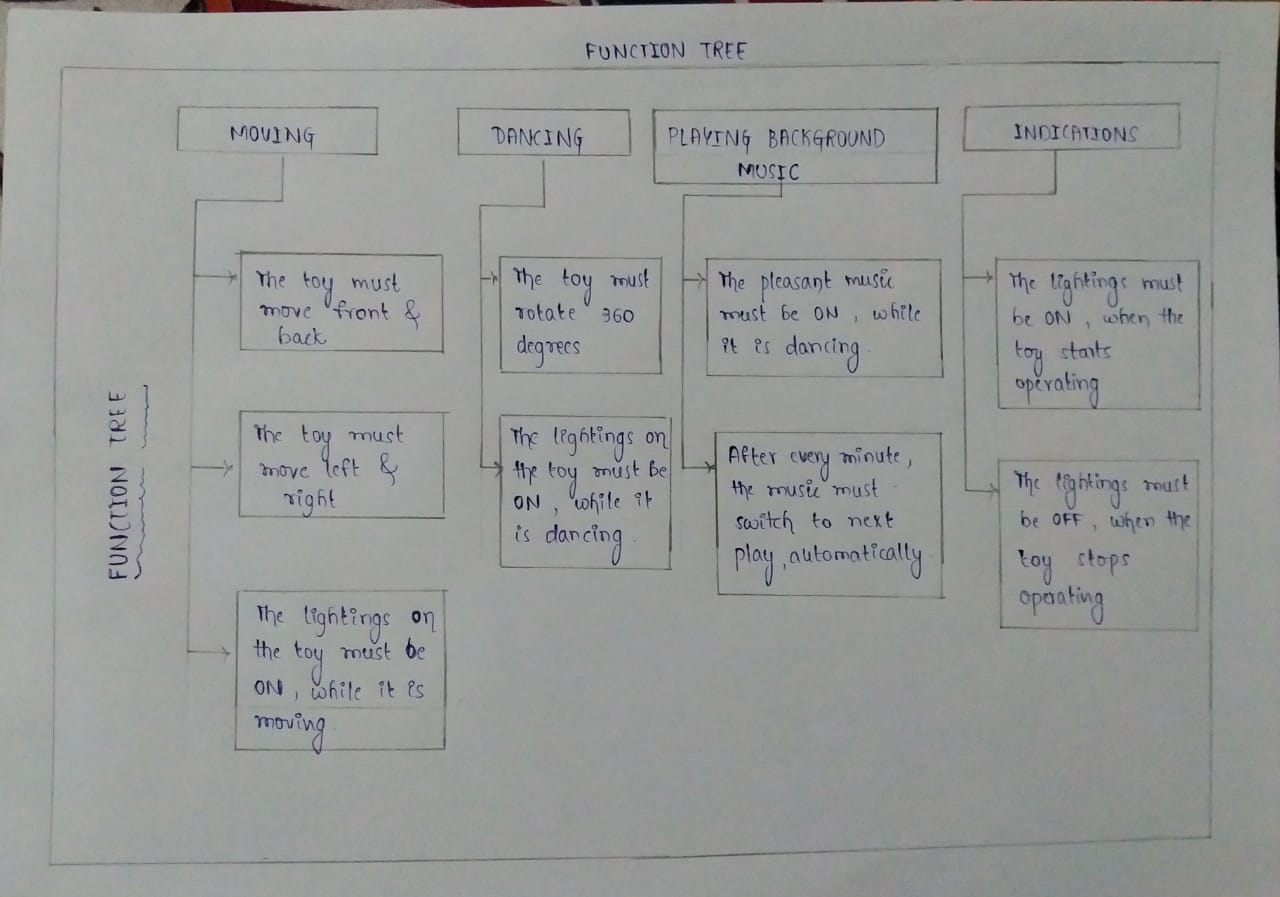 FUNCTION TREE
MOVING
The toy must
move front &
back
The toy must
move left &
right
The lightings on
the toy must be
ON, while it is
moving.
DANCING
The toy must
rotate 360
degrees
The lightings on
the toy must be
ON, while it
is dancing.
PLAYING BACKGROUND
MUSIC
The pleasant music
must be ON, while
it is dancing.
After every minute,
the music must
switch to next
play, automatically
INDICATIONS
The lightings must
be ON, when the
toy starts
operating
The lightings must
be OFF, when the
toy stops
operating
FUNCTION TREE